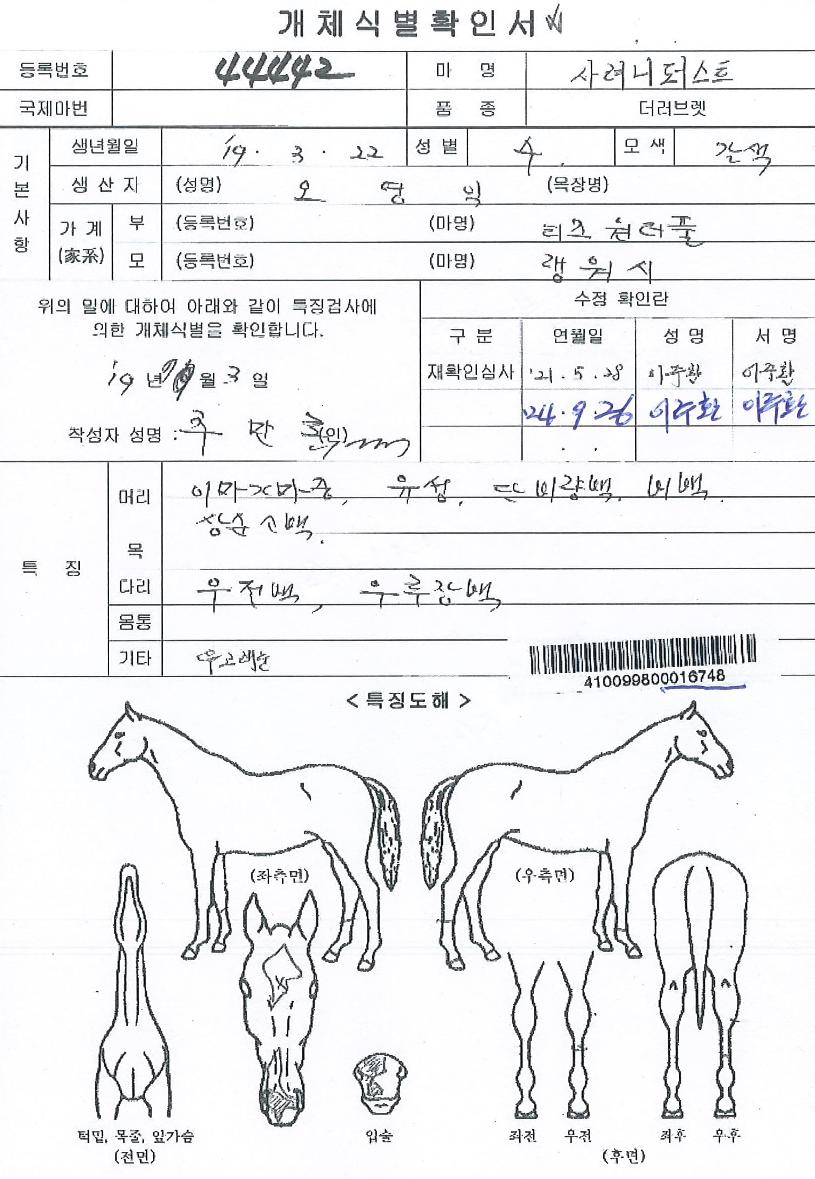 개체식별확인서
등록번호 44442 마 명 사려니더스트
국제마번 품 종 더러브렛
기본사항
생년월일 '19. 3. 22 성별 수 모색 갈색
생산자 (성명) 오 영 익 (목장명)
가계 (家系) 부 (등록번호) (마명) 티즈원더풀
모 (등록번호) (마명) 랭워시
위의 말에 대하여 아래와 같이 특징검사에
의한 개체식별을 확인합니다.
'19 년 월 3 일
작성자 성명 : (인)
수정 확인란
구 분 연월일 성 명 서 명
재확인심사 '21. 5. 28 이주환 이주환
'24. 9. 26 이주환 이주환
특 징
머리 이마가마중, 유성, 단비량백, 비백
상순소백.
목
다리 우전백, 우후장백
몸통
기타
410099800016748
< 특징도해 >
(좌측면) (우측면)
턱밑, 목줄, 앞가슴 입술 좌전 우전 좌후 우후
(전면) (후면)